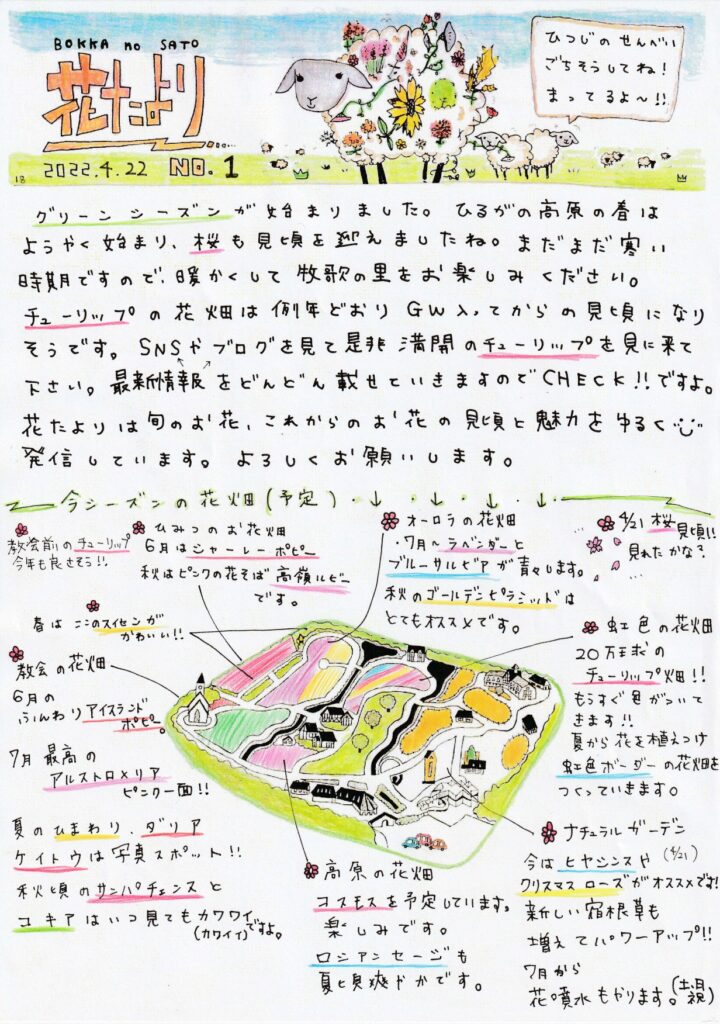 BOKKA no SATO
花たより
2022.4.22 NO.1
ひつじのせんべい
ごちそうしてね!
まってるよ〜!!
18
グリーンシーズンが始まりました。ひるがの高原の春は
ようやく始まり、桜も見頃を迎えましたね。まだまだ寒い
時期ですので、暖かくして牧歌の里をお楽しみください。
チューリップの花畑は例年どおりGW入ってからの見頃になり
そうです。SNSやブログを見て是非満開のチューリップを見に来て
下さい。最新情報をどんどん載せていきますのでCHECK!!ですよ。
花たよりは旬のお花、これからのお花の見頃と魅力をゆるく
発信しています。よろしくお願いします。
今シーズンの花畑(予定)
教会前のチューリップ
今年も良さそう!!
ひみつのお花畑
6月はシャーレーポピー
秋はピンクの花そば高嶺ルビー
です。
オーロラの花畑
・7月〜ラベンダーと
ブルーサルビアが青々します。
秋のゴールデンピラミッドは
とてもオススメです。
4/21 桜見頃!!
見れたかな?
春はここのスイセンが
かわいい!!
教会の花畑
6月の
ふんわりアイスランド
ポピー。
7月最高の
アルストロメリア
ピンク一面!!
夏のひまわり、ダリア
ケイトウは写真スポット!!
秋頃のサンパチェンスと
コキアはいつ見てもカワワイですよ。
(カワイイ)
虹色の花畑
20万球の
チューリップ畑!!
もうすぐ色がついて
きます!!
夏から花を植えつけ
虹色ボーダーの花畑を
つくっていきます。
高原の花畑
コスモスを予定しています。
楽しみです。
ロシアンセージも
夏頃爽やかです。
ナチュラルガーデン
今はヒヤシンスや(4/21)
クリスマスローズがオススメです!
新しい宿根草も
増えてパワーアップ!!
7月から
花噴水もやります。(土日祝)